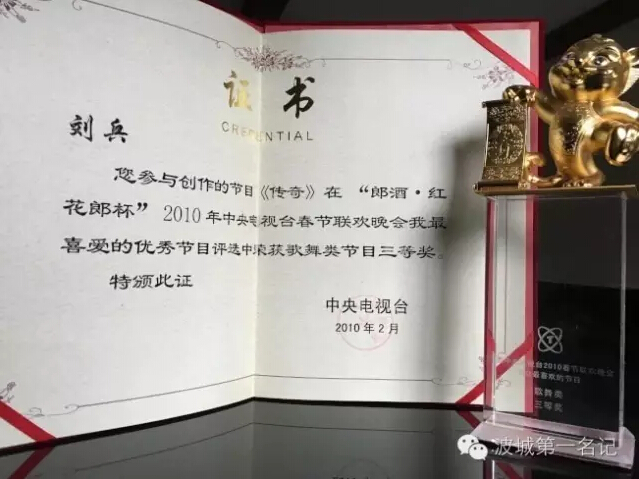 证书
CREDENTIAL
刘兵
您参与创作的节目《传奇》在“郎酒·红
花郎杯”2010年中央电视台春节联欢晚会我最
喜爱的优秀节目评选中荣获歌舞类节目三等奖。
特颁此证
中央电视台
2010年2月
视台2010春节联欢晚会
最喜欢的节目
歌舞类
三等奖
波城第一名记